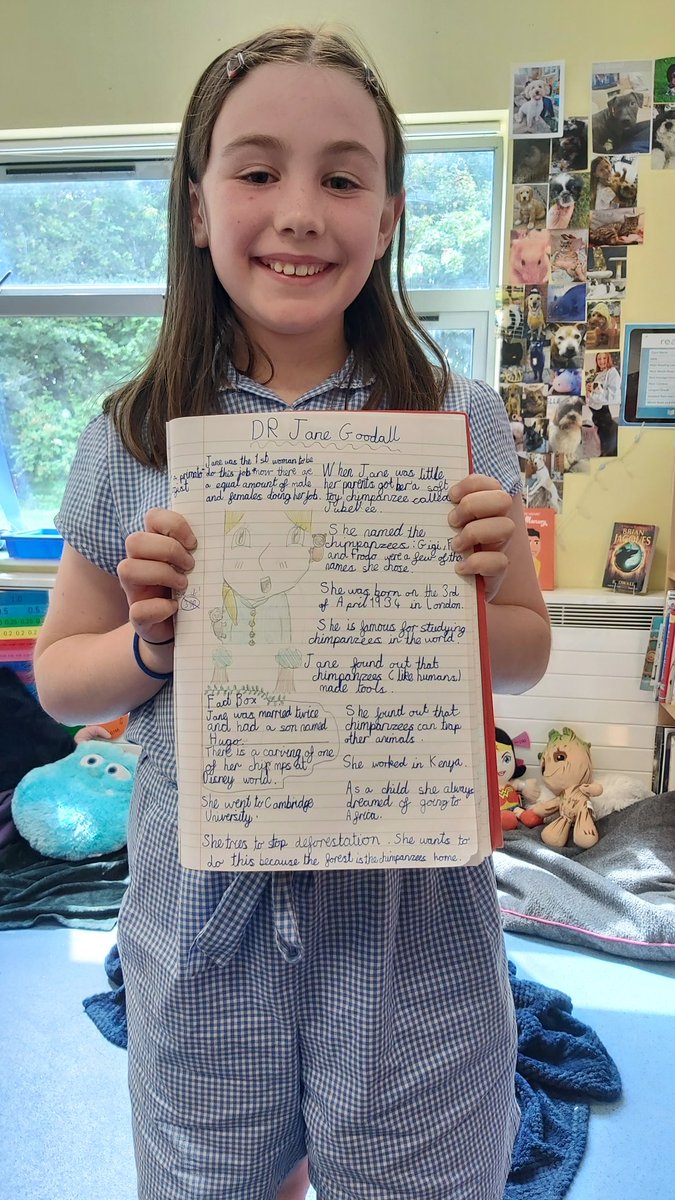 DR Jane Goodall
Jane was the 1st woman to be
a primate-
gist
do this job now there are
a equal amount of male
and females doing her job.
When Jane was little
her parents got her a soft
toy chimpanzee called
Jubellee.
She named the
chimpanzees: Gigi, F
and Frodo were a few of the
names she chose.
She was born on the 3rd
of April 1934 in London.
She is famous for studying
chimpanzees in the world.
Jane found out that
chimpanzees (like humans)
made tools.
Fact Box
Jane was married twice
and had a son named
Hugo.
There is a carving of one
of her chimps at
Disney world.
She went to Cambridge
University.
She found out that
chimpanzees can trap
other animals.
She worked in Kenya.
As a child she always
dreamed of going to
Africa.
She tries to stop deforestation. She wants to
do this because the forest is the chimpanzees home.
BRIAN
JACQUES
rea
0.5